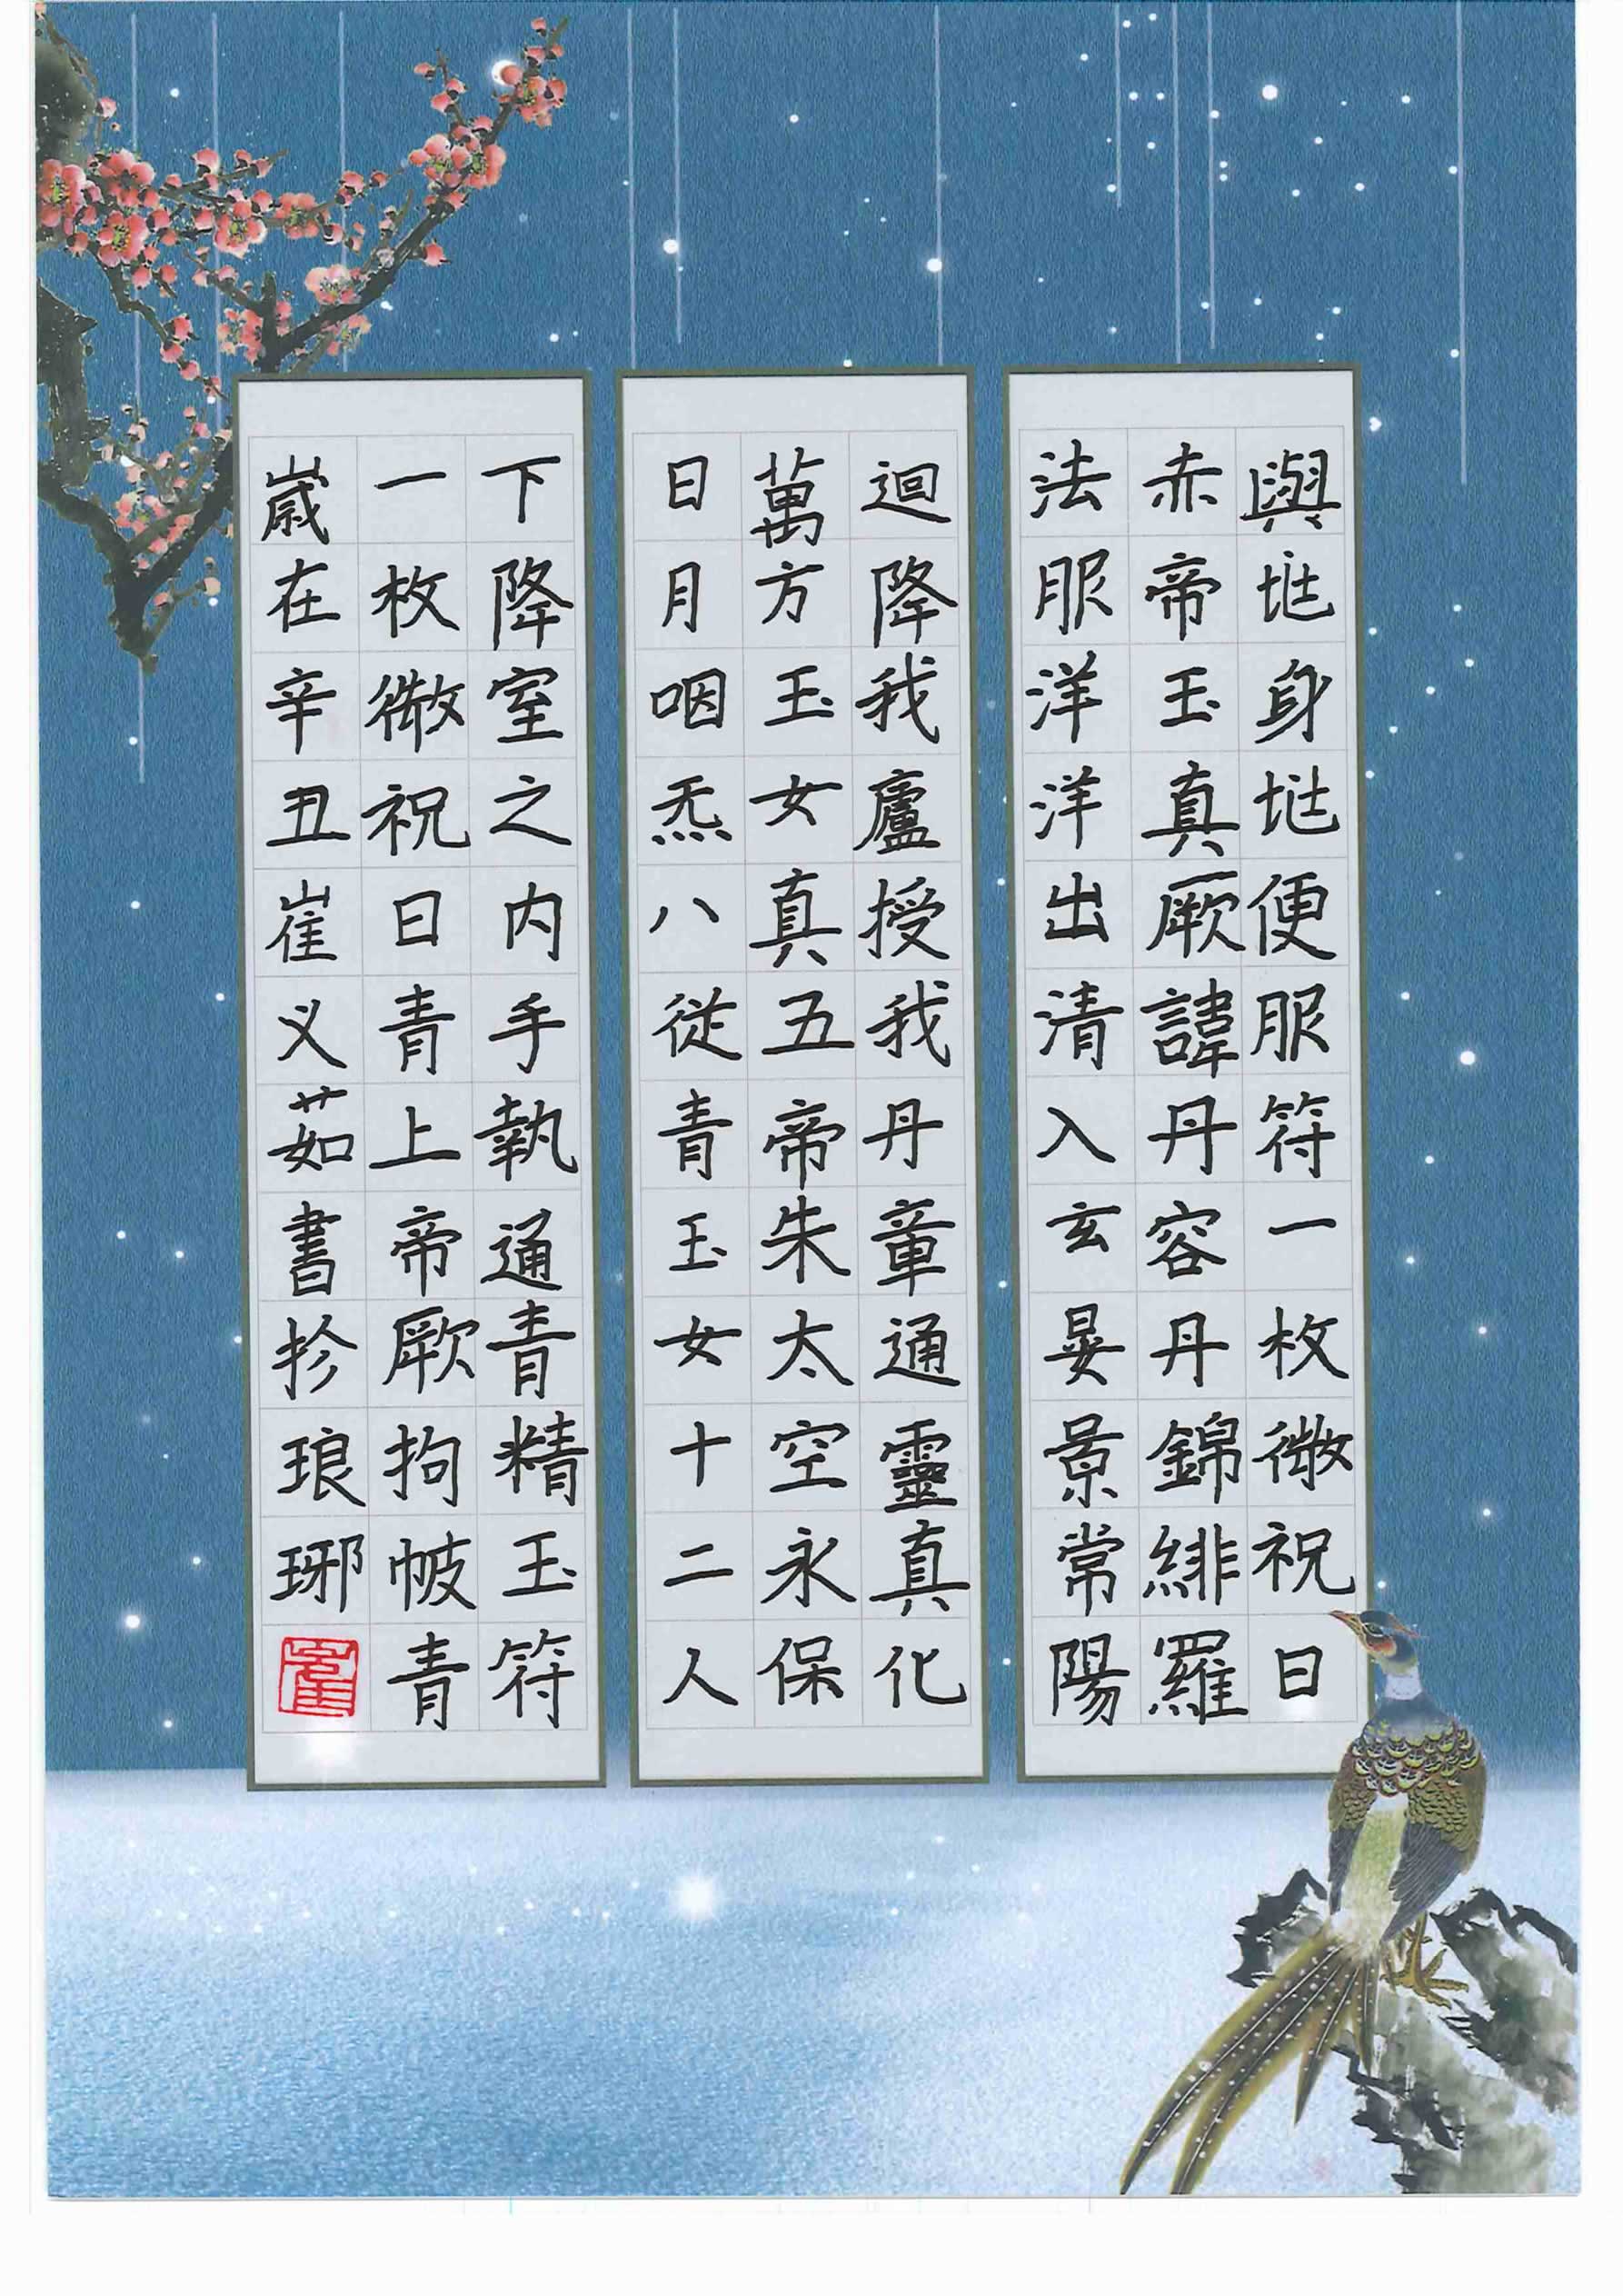 與𡉏身𡉏便服符一枚微祝曰
赤帝玉真厥諱丹容丹錦緋羅
法服洋洋出清入玄晏景常陽
迴降我廬授我丹章通靈真化
萬方玉女真五帝朱太空永保
日月咽炁八從青玉女十二人
下降室之内手執通青精玉符
一枚微祝曰青上帝厥拘帔青
嵗在辛丑崔义茹書於琅琊